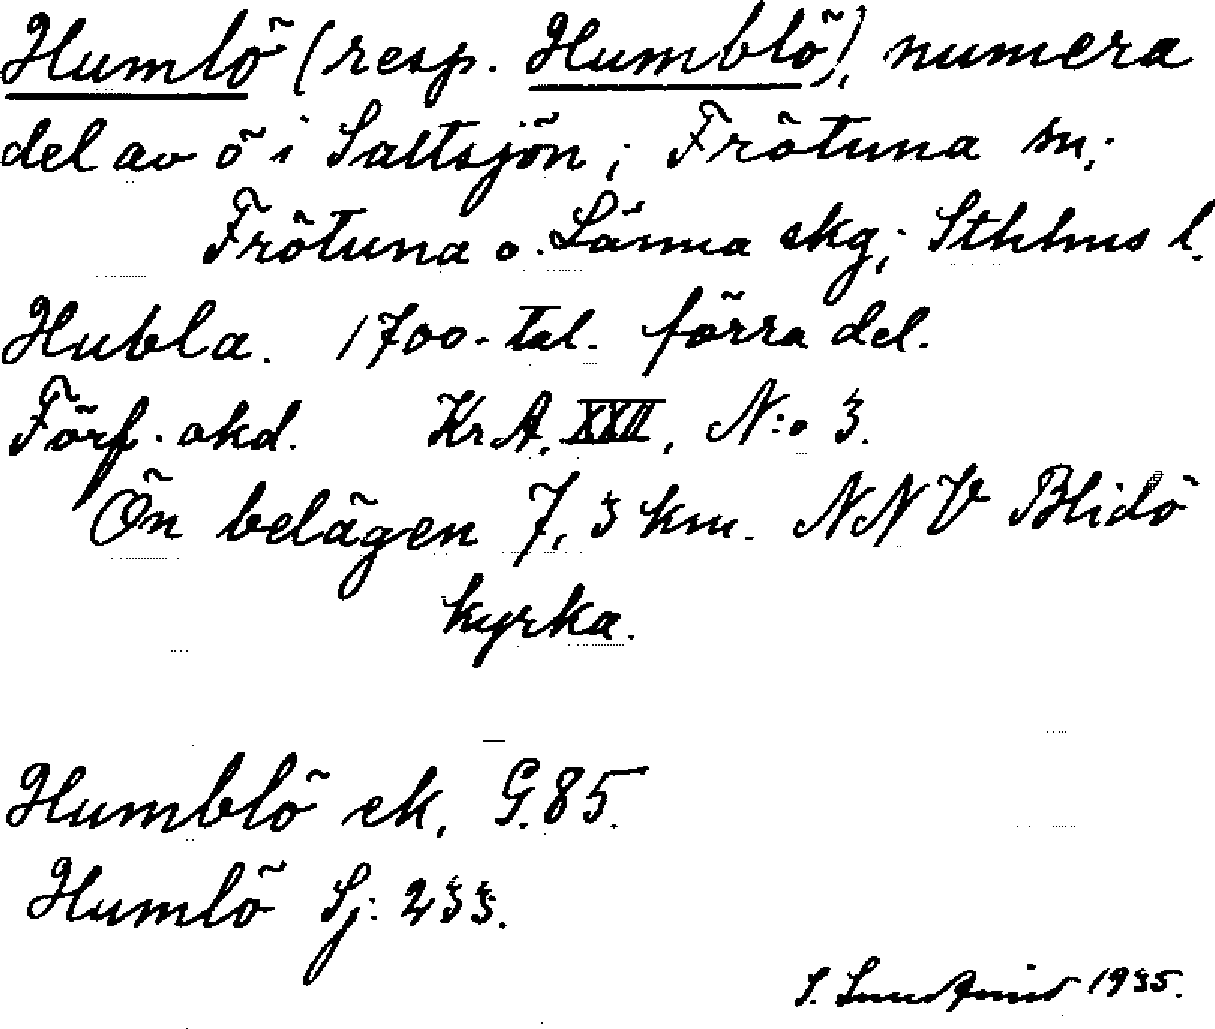 Humlö (resp. Humblö), numera
del av ö i Saltsjön; Frötuna sn;
Frötuna o. Länna skg; Sthlms l.
Hubla. 1700-tal. förra del.
Förf. okd. Kr.A. XXII, N:o 3.
Ön belägen 7,3 km. NNV Blidö
kyrka.
Humblö ek. G.85.
Humlö Sj: 233.
S. 1935.